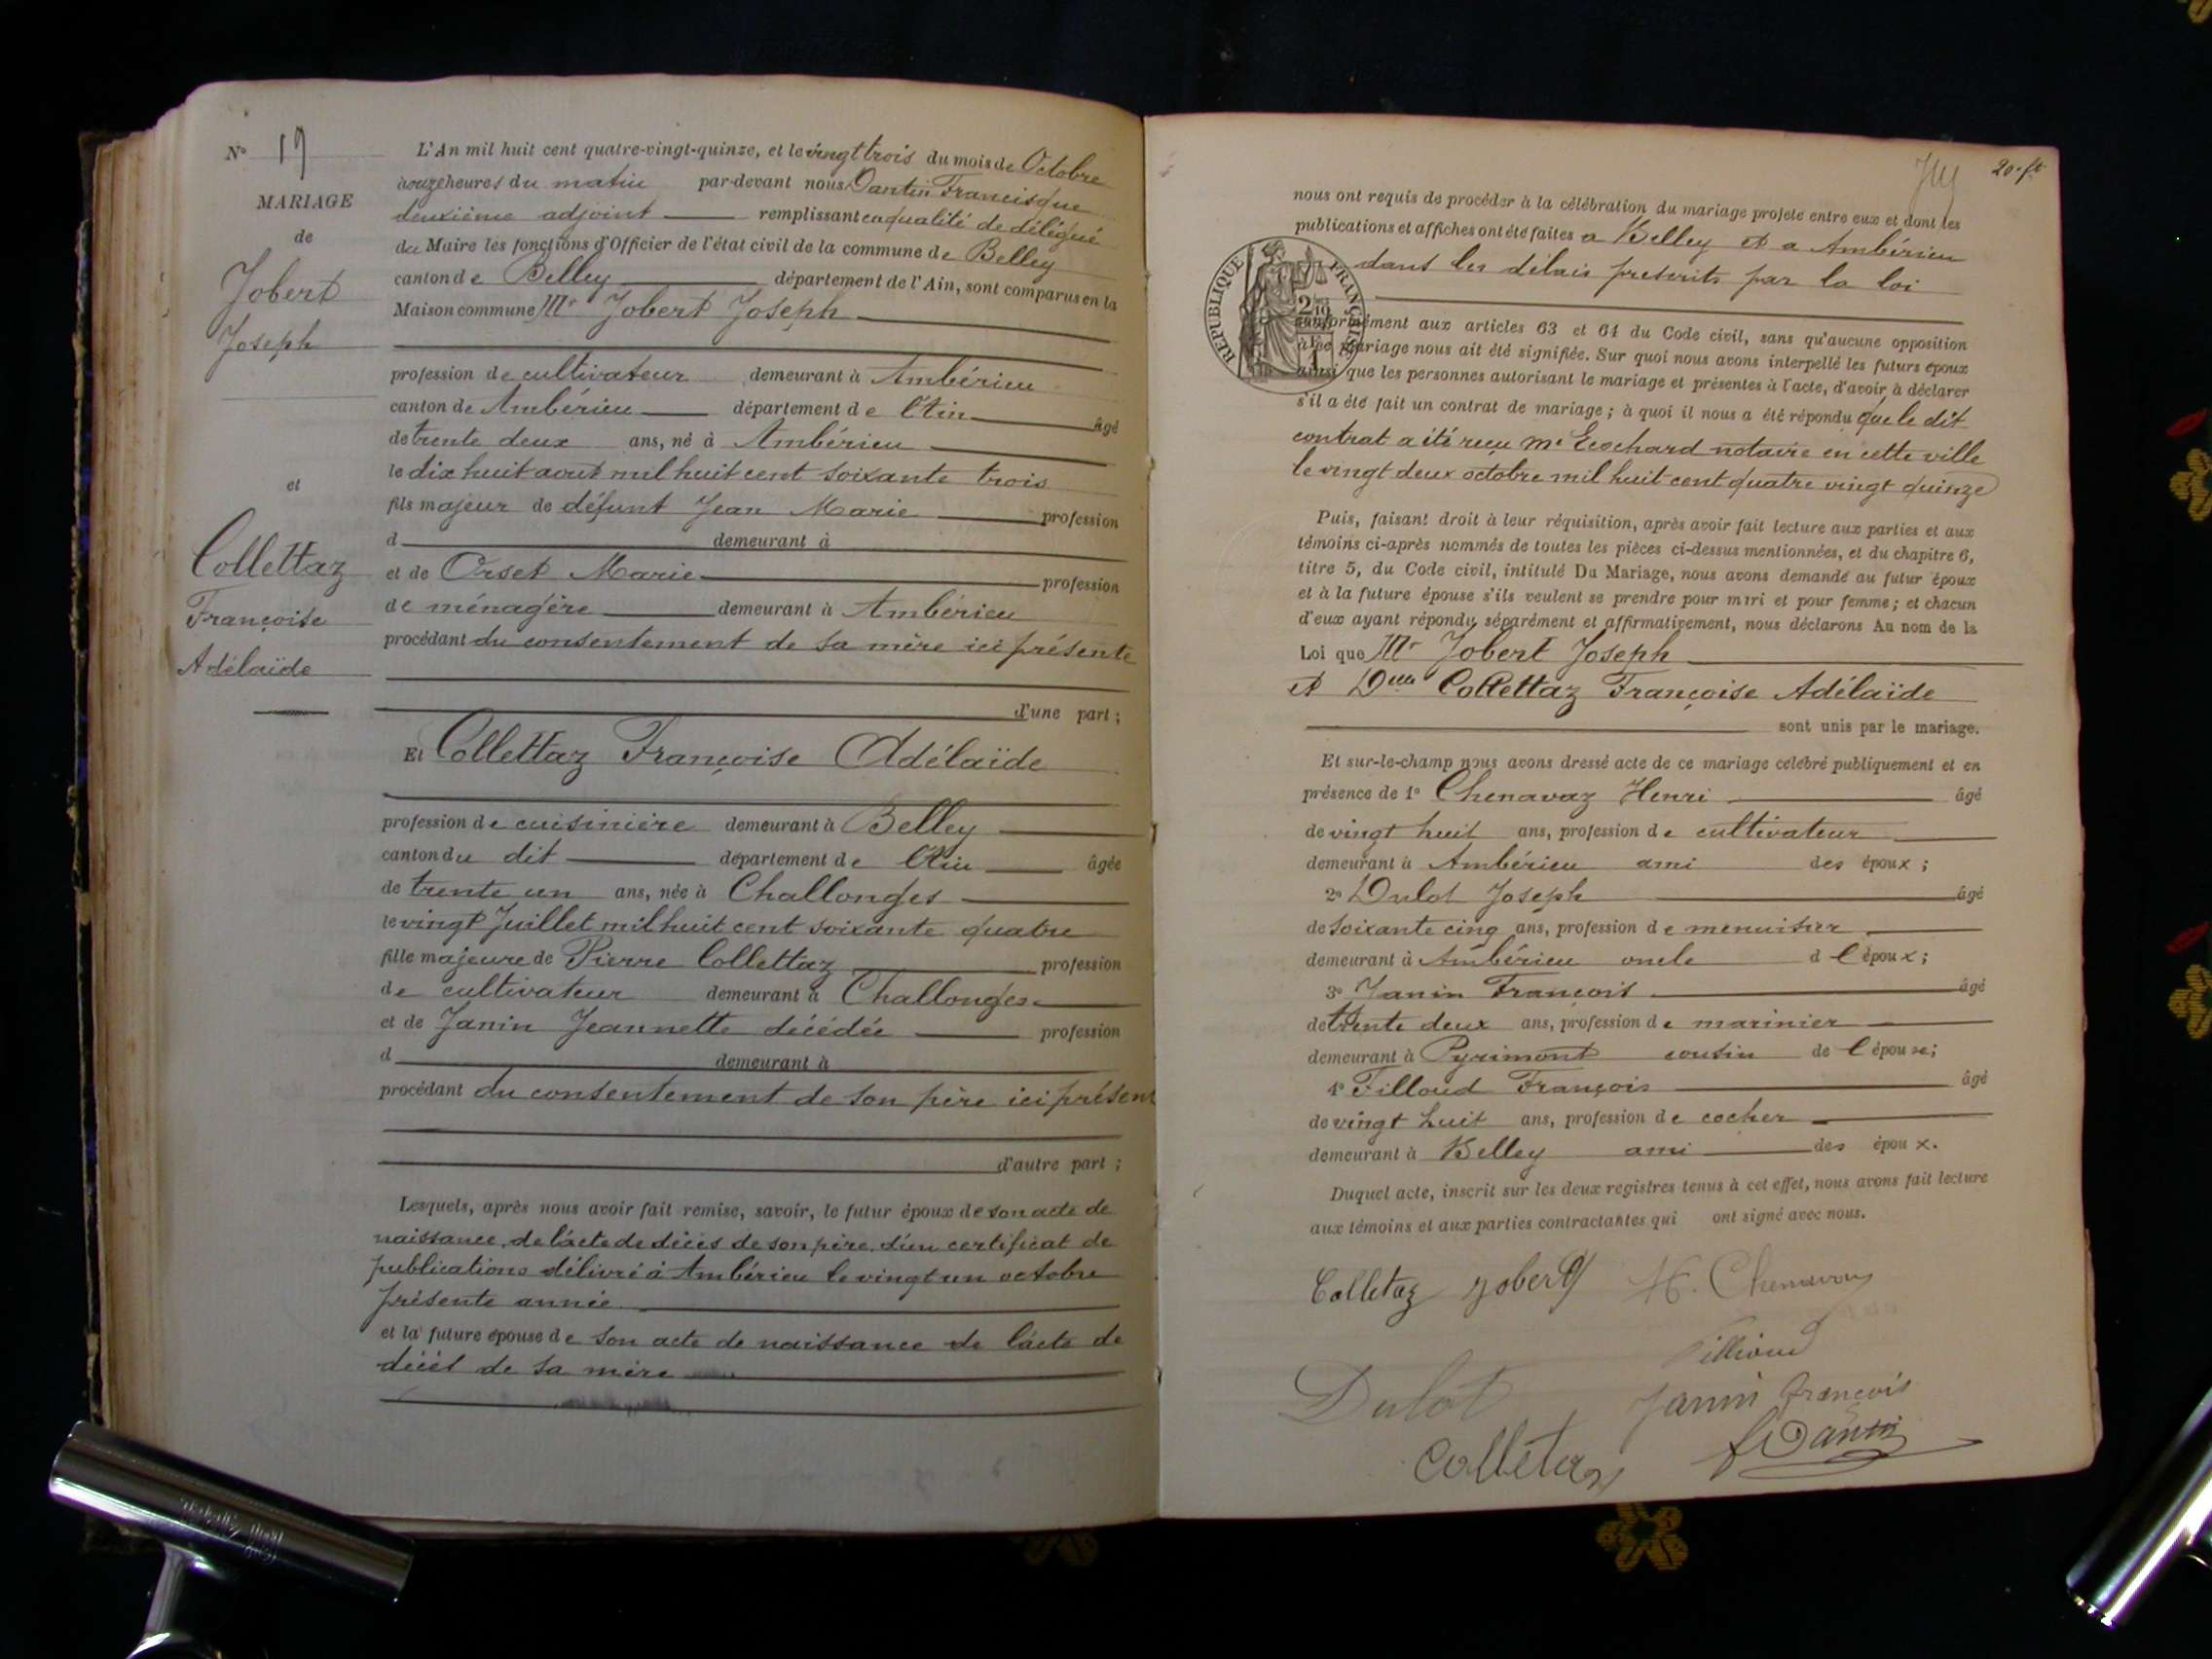 N° 19
MARIAGE
de
Jobert
Joseph
et
Collettaz
Françoise
Adélaïde
L'An mil huit cent quatre-vingt-quinze, et le vingt trois du mois de Octobre
à onze heures du matin par-devant nous Dantin Francisque
deuxième adjoint remplissant en qualité de délégué
du Maire les fonctions d'Officier de l'état civil de la commune de Belley
canton de Belley département de l'Ain, sont comparus en la
Maison commune Mr Jobert Joseph
profession de cultivateur demeurant à Ambérieu
canton de Ambérieu département de l'Ain âgé
de trente deux ans, né à Ambérieu
le dix huit aout mil huit cent soixante trois
fils majeur de défunt Jean Marie profession
d demeurant à
et de Orset Marie profession
de ménagère demeurant à Ambérieu
procédant du consentement de sa mère ici présente
d'une part ;
Et Collettaz Françoise Adélaïde
profession de cuisinière demeurant à Belley
canton du dit département de l'Ain âgée
de trente un ans, née à Challonges
le vingt Juillet mil huit cent soixante quatre
fille majeure de Pierre Collettaz profession
de cultivateur demeurant à Challonges
et de Janin Jeannette décédée profession
d demeurant à
procédant du consentement de son père ici présent
d'autre part ;
Lesquels, après nous avoir fait remise, savoir, le futur époux de son acte de
naissance, de l'acte de décès de son père, d'un certificat de
publications délivré à Ambérieu le vingt un octobre
présente année
et la future épouse de son acte de naissance de l'acte de
décès de sa mère
20e ft
nous ont requis de procéder à la célébration du mariage projeté entre eux et dont les
publications et affiches ont été faites a Belley et a Ambérieu
dans les délais prescrits par la loi
RÉPUBLIQUE FRANÇAISE
conformément aux articles 63 et 64 du Code civil, sans qu'aucune opposition
à ce mariage nous ait été signifiée. Sur quoi nous avons interpellé les futurs époux
ainsi que les personnes autorisant le mariage et présentes à l'acte, d'avoir à déclarer
s'il a été fait un contrat de mariage ; à quoi il nous a été répondu que le dit
contrat a été reçu Me Ecochard notaire en cette ville
le vingt deux octobre mil huit cent quatre vingt quinze
Puis, faisant droit à leur réquisition, après avoir fait lecture aux parties et aux
témoins ci-après nommés de toutes les pièces ci-dessus mentionnées, et du chapitre 6,
titre 5, du Code civil, intitulé Du Mariage, nous avons demandé au futur époux
et à la future épouse s'ils veulent se prendre pour mari et pour femme ; et chacun
d'eux ayant répondu séparément et affirmativement, nous déclarons Au nom de la
Loi que Mr Jobert Joseph
et Dlle Collettaz Françoise Adélaïde
sont unis par le mariage.
Et sur-le-champ nous avons dressé acte de ce mariage célébré publiquement et en
présence de 1° Chenavaz Henri âgé
de vingt huit ans, profession de cultivateur
demeurant à Ambérieu ami des époux ;
2° Dulot Joseph âgé
de soixante cinq ans, profession de menuisier
demeurant à Ambérieu oncle d l'époux ;
3° Janin François âgé
de trente deux ans, profession de marinier
demeurant à Pyrimont cousin de l'épouse ;
4° Filloud François âgé
de vingt huit ans, profession de cocher
demeurant à Belley ami des époux.
Duquel acte, inscrit sur les deux registres tenus à cet effet, nous avons fait lecture
aux témoins et aux parties contractantes qui ont signé avec nous.
Colletaz Jobert H. Chenavaz
Fillioud
Dulot Janin françois
Colletaz F Dantin